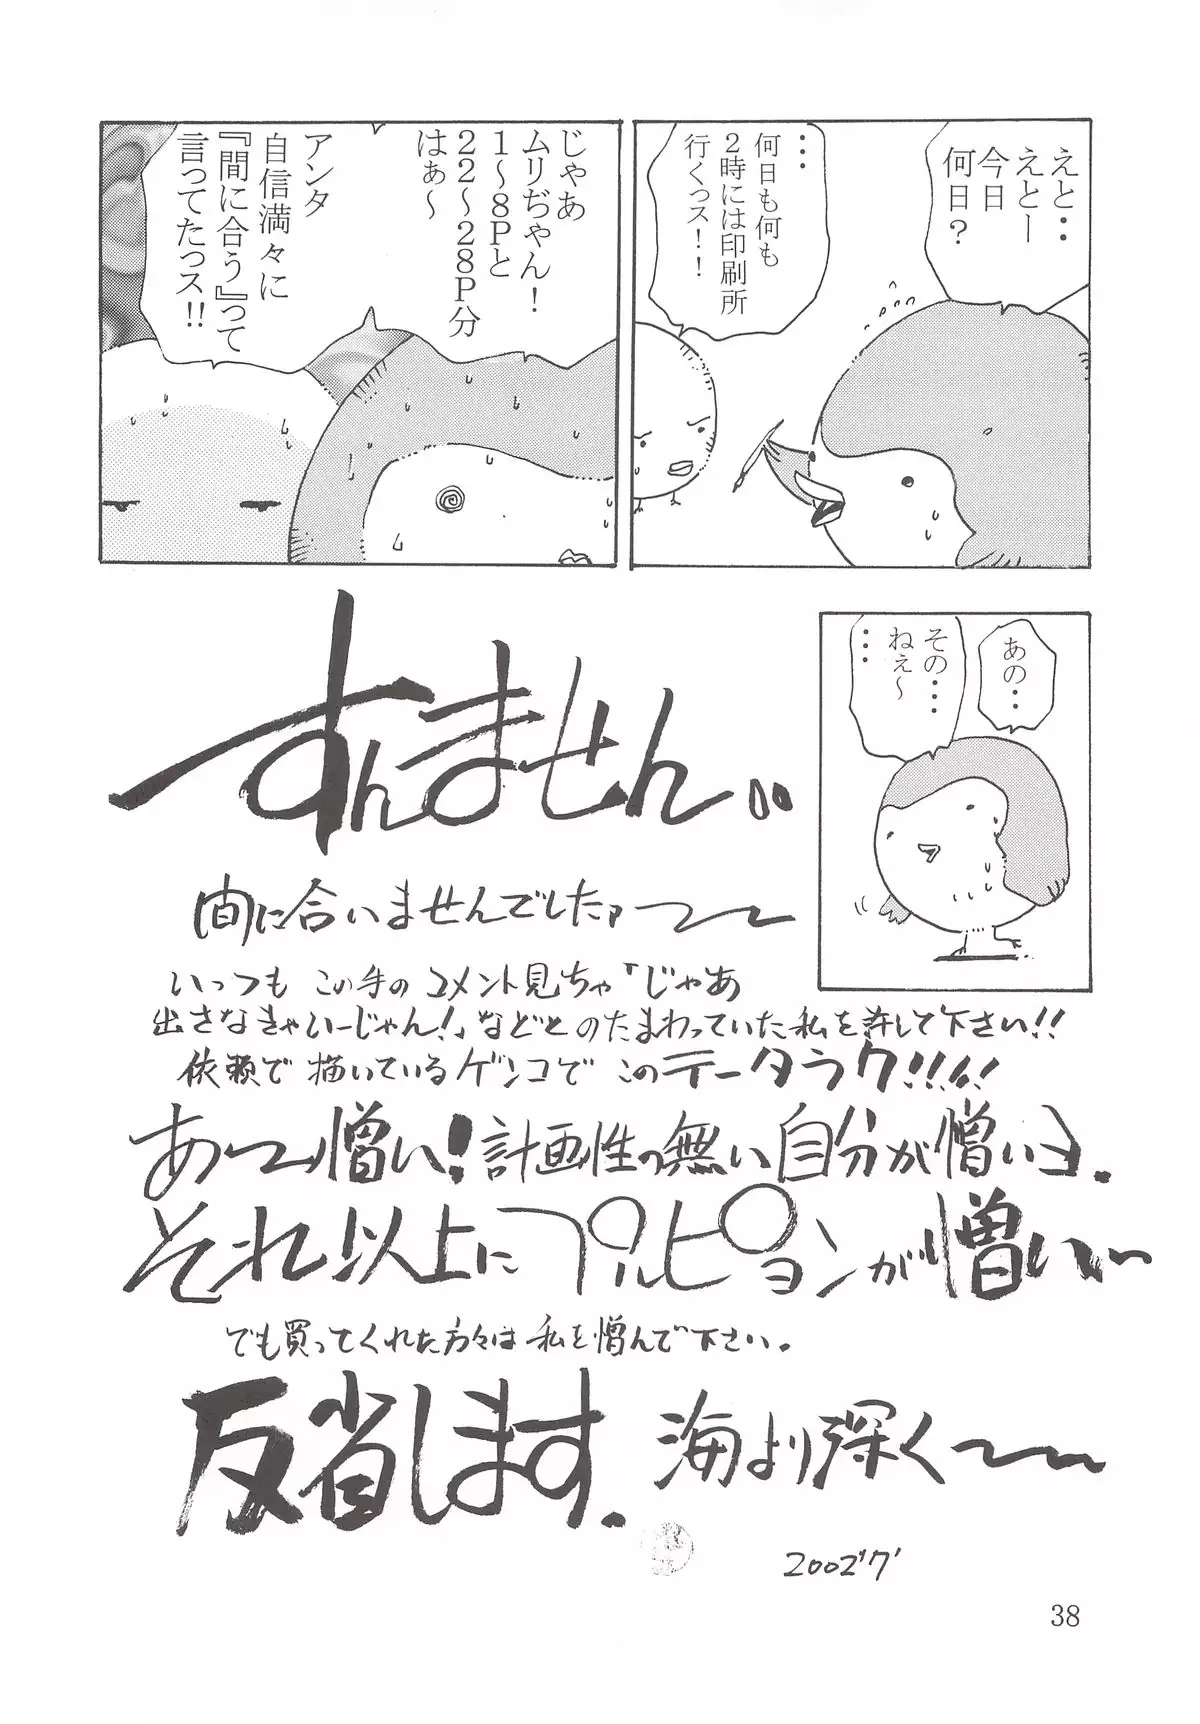 えと・・
えとー
今日
何日？
・・・
何日も何も
２時には印刷所
行くっス！！
じゃあ
ムリぢゃん！
１〜８Ｐと
２２〜２８Ｐ分
はぁ〜
アンタ
自信満々に
『間に合う』って
言ってたっス!!
あの・・
その・・・・
ねぇ〜
・・・
すんません。。
間に合いませんでした〜
いつも この手のコメント見ちゃ「じゃあ
出さなきゃいーじゃん！」などとのたまわっていた私を許して下さい!!
依頼で描いているゲンコでこのテータラク!!!!
あ〜憎い！計画性の無い自分が憎いヨ.
それ以上にプルピョンが憎い〜
でも買ってくれた方々は私を憎んで下さい.
反省します. 海より深く〜
2002'7'
38